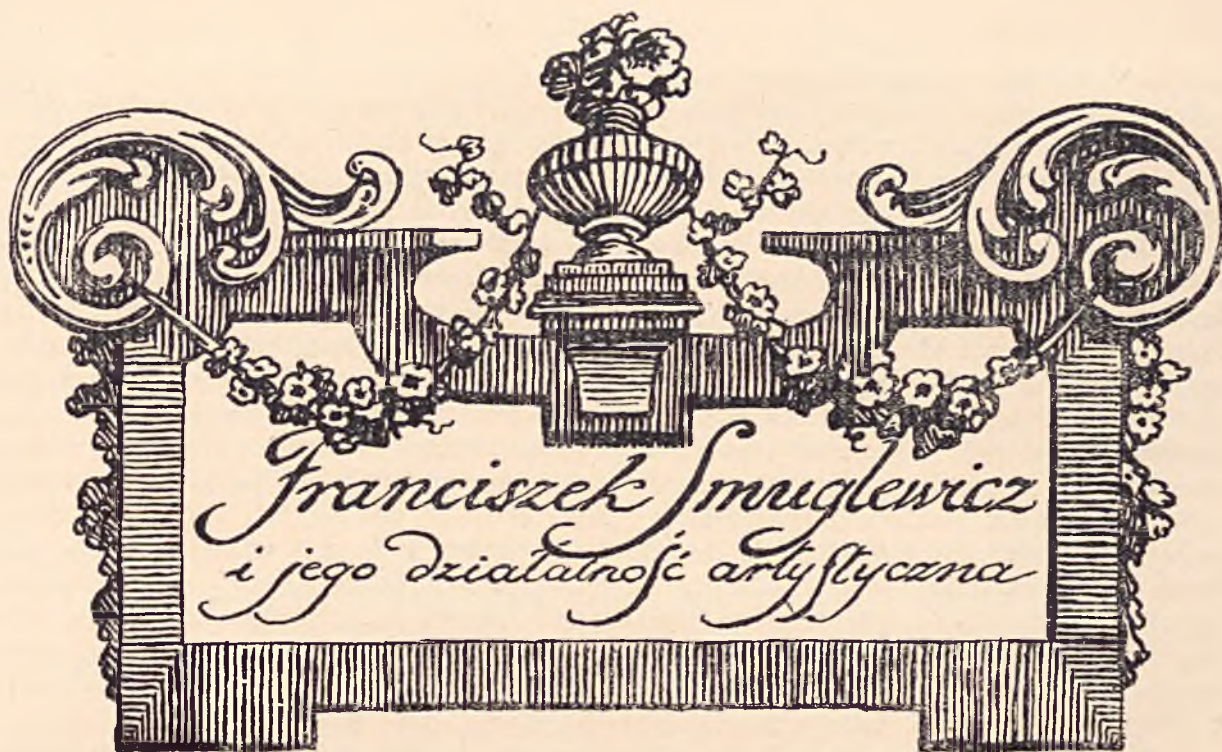 Franciszek Smuglewicz
i jego działalność artyſtyczna